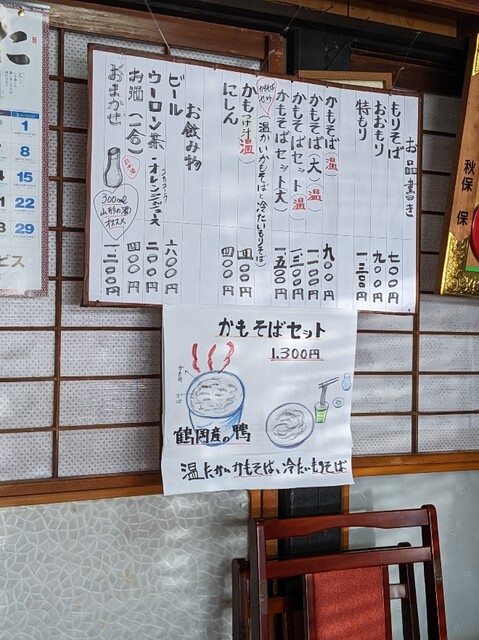 お品書き
もりそば 七〇〇円
おおもり 九〇〇円
特もり 一、三〇〇円
かもそば 温 九〇〇円
かもそば(大) 温 一、一〇〇円
かもそばセット 温 一、三〇〇円
かもそばセット(大) 一、五〇〇円
(温かいかもそばと冷たいもりそば)
かも汁 温 四〇〇円
にしん 四〇〇円
お飲み物
ビール 六〇〇円
ウーロン茶・オレンジジュース 二〇〇円
お酒(一合) 四〇〇円
おまかせ 一、二〇〇円
300ml
山形の酒
かもそばセット
1.300円
鶴岡産の鴨
温たかいかもそば、冷たいもりそば
秋保 保
に
1
8
15
22
29
ビス